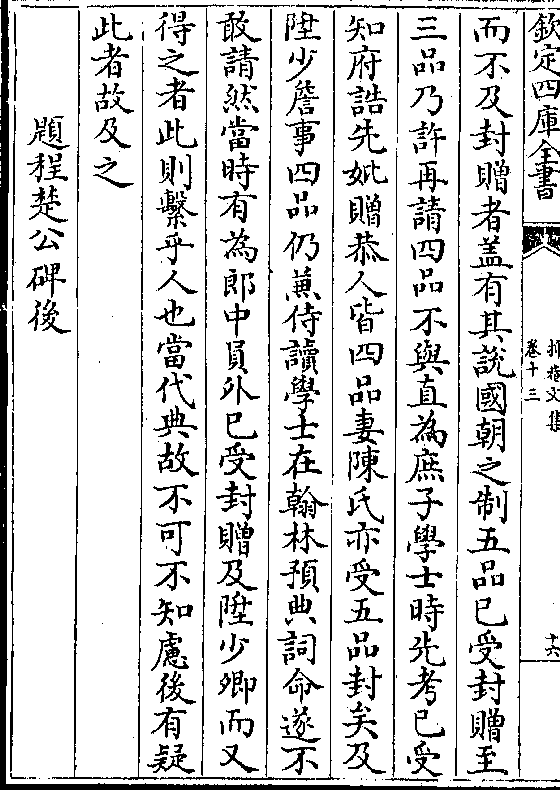 欽定四庫全書
抑菴文集
卷十三
十六
而不及封贈者蓋有其說國朝之制五品已受封贈至
三品乃許再請四品不與直為庶子學士時先考已受
知府誥先妣贈恭人皆四品妻陳氏亦受五品封矣及
陞少詹事四品仍兼侍讀學士在翰林預典詞命遂不
敢請然當時有為郎中員外已受封贈及陞少卿而又
得之者此則繫乎人也當代典故不可不知慮後有疑
此者故及之
題程楚公碑後